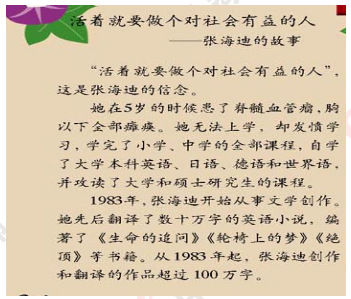 活着就要做个对社会有益的人
——张海迪的故事
“活着就要做个对社会有益的人”，
这是张海迪的信念。
她在5岁的时候患了脊髓血管瘤，胸
以下全部瘫痪。她无法上学，却发愤学
习，学完了小学、中学的全部课程，自学
了大学本科英语、日语、德语和世界语，
并攻读了大学和硕士研究生的课程。
1983年，张海迪开始从事文学创作。
她先后翻译了数十万字的英语小说，编
著了《生命的追问》《轮椅上的梦》《绝
顶》等书籍。从1983年起，张海迪创作
和翻译的作品超过100万字。